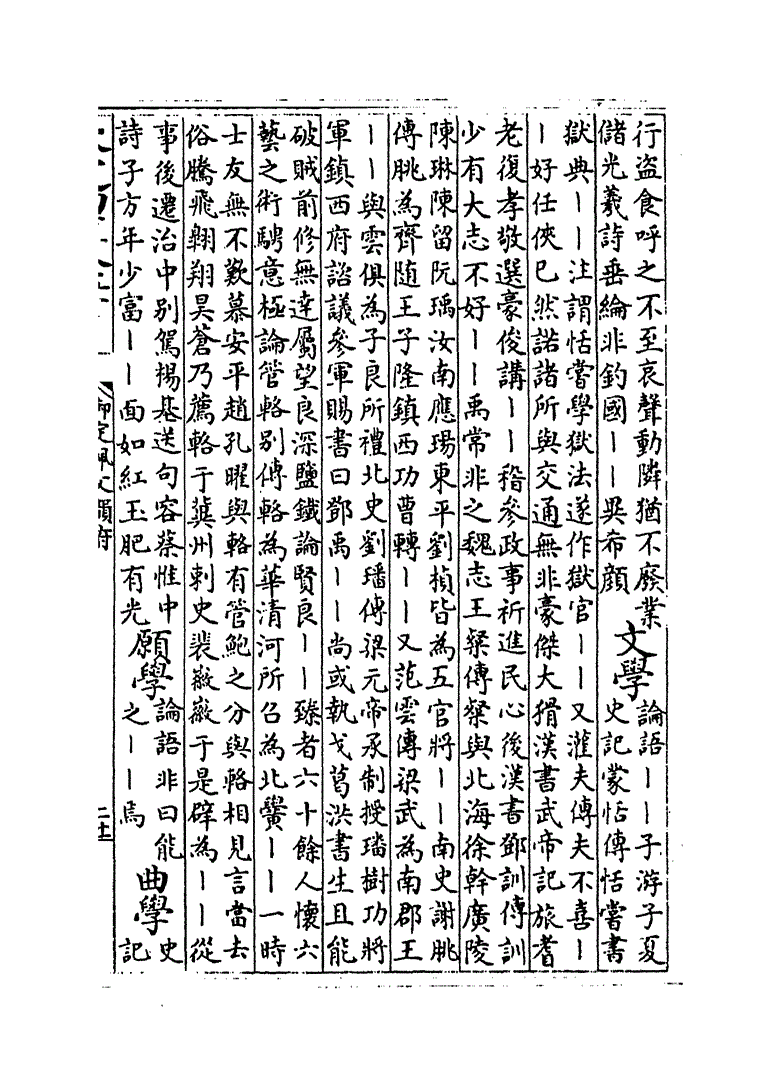 行盜食呼之不至哀聲動隣猶不廢業
儲光羲詩垂綸非釣國丨丨異布顔
文學
論語丨丨子游子夏
史記蒙恬傳恬嘗書
獄典丨丨注謂恬嘗學獄法遂作獄官丨丨又灌夫傳夫不喜丨
丨好任俠已然諾諸所與交通無非豪傑大猾漢書武帝記旅耆
老復孝敬選豪俊講丨丨稽參政事祈進民心後漢書鄧訓傳訓
少有大志不好丨丨禹常非之魏志王粲傳粲與北海徐幹廣陵
陳琳陳留阮瑀汝南應瑒東平劉楨皆為五官將丨丨南史謝脁
傳脁為齊隨王子隆鎮西功曹轉丨丨又范雲傳梁武為南郡王
丨丨與雲俱為子良所禮北史劉璠傳梁元帝承制授璠樹功將
軍鎮西府諮議參軍賜書曰鄧禹丨丨尚或執戈葛洪書生且能
破賊前修無遠屬望良深鹽鐵論賢良丨丨臻者六十餘人懷六
藝之術騁意極論管輅別傳輅為華清河所召為北黌丨丨一時
士友無不歎慕安平趙孔曜與輅有管鮑之分與輅相見言當去
俗騰飛翱翔昊蒼乃薦輅于冀州刺史裴徽徽于是辟為丨丨從
事後遷治中別駕楊基送句容蔡惟中
詩子方年少富丨丨面如紅玉肥有光
願學
論語非曰能
之丨丨焉
曲學
史
記
御定佩文韻府